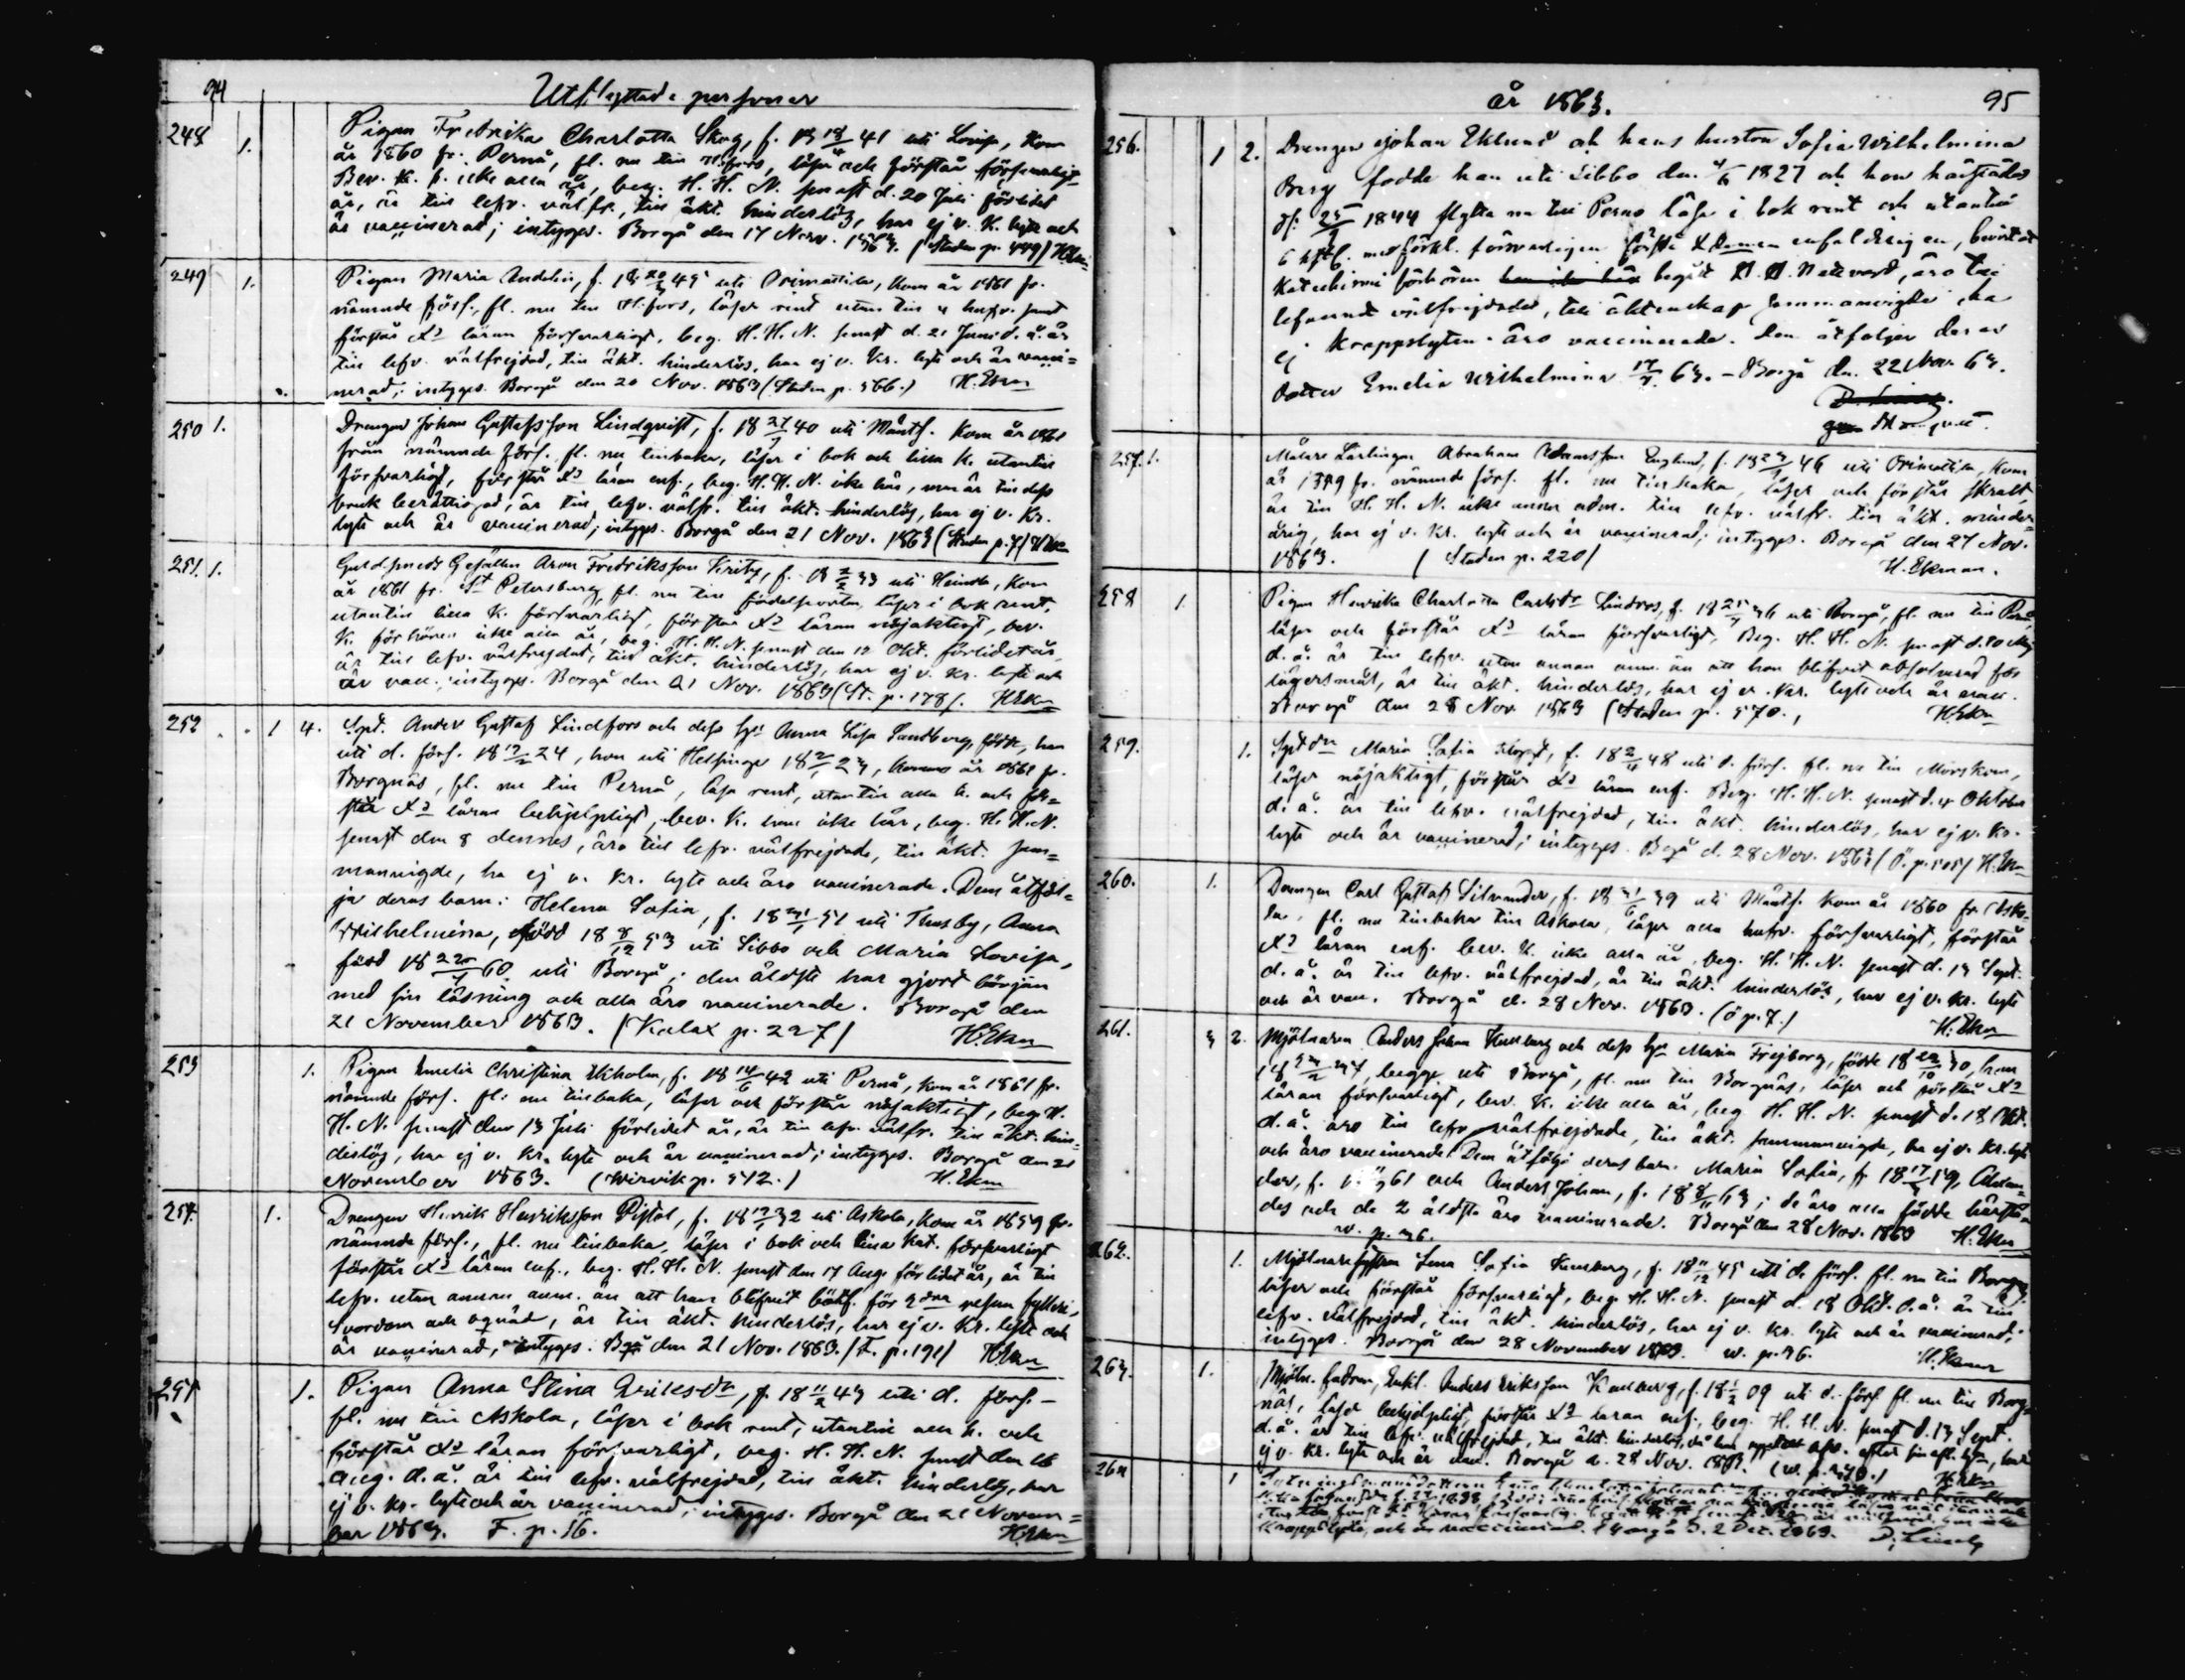 94
Utflyttade personer
248 1. Pigan Fredrika Charlotta Skog, f. 18 18/4 41 uti Lovisa, kom
år 1860 fr. Pernå, fl. nu till H:fors, läser och förstår försvarligt
Bev. K. f. icke alla år, beg. H. H. N. senast d. 20 Juli förlidet
år, är till lefv. välfr., till äkt. hinderlös, har ej v. K. lyte och
är vaccinerad; intygas. Borgå den 17 Nov. 1863. (Staden p. 449) H.Ekm
249 1. Pigan Maria Andelin, f. 18 20/3 45 uti Orimattila, kom år 1861 fr.
nämnde förs., fl. nu till H:fors, läser rent utan till 4 hufv. samt
förstår Xs läran försvarligt, beg. H. H. N. senast d. 21 Juni d. å. är
till lefv. välfrejdad, till äkt. hinderlös, har ej v. Kr. lyte och är vacci=
nerad; intygas. Borgå den 20 Nov. 1863 (Staden p. 566.) H.Ekm
250 1. Drengen Johan Gustafsson Lindqvist, f. 18 27/7 40 uti Mänts. kom år 1861
från nämnde förs. fl. nu tillbaka, läser i bok och lilla K. utantill
försvarligt, förstår Xs läran enf., beg. H. H. N. icke här, men är till dess
bruk berättigad, är till lefv. välfr. till äkt. hinderlös, har ej v. Kr.
lyte och är vaccinerad; intygas. Borgå den 21 Nov. 1863 (Staden p. 7) H.Ekm
251. 1. Guldsmeds Gesällen Aron Fredriksson Kritz, f. 18 2/2 33 uti Heinola, kom
år 1861 fr. St Petersburg, fl. nu till födelseorten, läser i bok rent,
utantill lilla K. försvarligt, förstår Xs läran nöjaktigt, bev.
K. förhören icke alla år, beg. H. H. N. senast den 12 Okt. förlidet år,
är till lefv. välfrejdad, till äkt. hinderlös, har ej v. Kr. lyte och
är vacc. intygas. Borgå den 21 Nov. 1863 (St. p. 178). H.Ekm
252 1 4. Spt. Anders Gustaf Lindfors och dess hu Anna Lisa Sandberg, födde, han
uti d. förs. 18 17/2 24, hon uti Helsinge 18 2/1 23, kommo år 1861 fr.
Borgnäs, fl. nu till Pernå, läsa rent, utantill alla K. och för=
stå Xs läran behjelpligt, bev. K. hon icke här, beg. H. H. N.
senast den 8 dennes, äro till lefv. välfrejdade, till äkt. sam=
manvigde, ha ej v. Kr. lyte och äro vaccinerade. Dem åtföl=
ja deras barn: Helena Sofia, f. 18 31/1 51 uti Thusby, Anna
Wilhelmina, född 18 8/12 53 uti Sibbo och Maria Lovisa,
född 18 22/7 60 uti Borgå; den äldste har gjort början
med sin läsning och alla äro vaccinerade. Borgå den
21 November 1863. (Kalax p. 227) H.Ekm
253 1. Pigan Emelia Christina Ekholm, f. 18 14/6 42 uti Pernå, kom år 1861 fr.
nämnde förs. fl. nu tillbaka, läser och förstår nöjaktigt, beg. H.
H. N. senast den 13 Juli förlidet år, är till lefv. välfr. till äkt. hin=
derlös, har ej v. Kr. lyte och är vaccinerad; intygas. Borgå den 21
November 1863. (Wirvik p. 542.) H.Ekm
254. 1. Drengen Henrik Henriksson Pistol, f. 18 17/1 32 uti Askola, kom år 1859 fr.
nämnde förs., fl. nu tillbaka, läser i bok och lilla Kat. försvarligt
förstår Xs läran enf., beg. H. H. N. senast den 17 Aug. förlidet år, är till
lefv. utan annan anm. än att han blifvit bötf. för 2dra resan fylleri,
svordom och oqväd, är till äkt. hinderlös, har ej v. Kr. lyte och
är vaccinerad, intygas. Bgå den 21 Nov. 1863. (F. p. 191) H.Ekm
255 1. Pigan Anna Stina Eriksdr, f. 18 11/2 43 uti d. förs. –
fl. nu till Askola, läser i bok rent, utantill alla K. och
förstår Xs läran försvarligt, beg. H. H. N. senast den 16
Aug. d. å. är till lefv. välfrejdad, till äkt. hinderlös, har
ej v. Kr. lyte och är vaccinerad; intygas. Borgå den 21 Novem=
ber 1863. F. p. 56. H.Ekm
år 1863. 95
256. 1 2. Drengen Johan Eklund och hans hustru Sofia Wilhelmina
Berg födde han uti Sibbo den 4/6 1827 och hon härstädes
d. 25/9 1844 flytta nu till Perno läsa i bok rent och utantill
6 hftst. med förkl. försvarligen förstå Xdomen enfaldeligen, bevistat
Katechismi förhören begått H. H. Nattvard, äro till
lefvernet välfrejdade, till äktenskap sammanvigde, ha
ej kroppslyten äro vaccinerade. Dem åtföljer deras
dotter Emelia Wilhelmina 17/7 63. – Borgå den 22 Nov. 63.
257. 1. Målare Lärlingen Abraham Adamsson Englund, f. 18 23/3 46 uti Orimattila, kom
år 1859 fr. nämnde förs. fl. nu tillbaka, läser och förstår skralt
är till H. H. N. icke ännu adm. till lefv. välfr. till äkt. minder=
årig, har ej v. Kr. lyte och är vaccinerad; intygas. Borgå den 27 Nov.
1863. (Staden p. 220) H. Ekman.
258 1. Pigan Henrika Charlotta Carlsdr Lindros, f. 18 25/7 36 uti Borgå, fl. nu till Pernå,
läser och förstår Xs läran försvarligt, Beg. H. H. N. senast d. 10 Maj
d. å. är till lefv. utan annan anm. än att hon blifvit absolverad för
lägersmål, är till äkt. hinderlös, har ej v. Kr. lyte och är vacc.
Borgå den 28 Nov. 1863 (Staden p. 570., H.Ekm
259. 1. Sptdn Maria Sofia, f. 18 2/4 48 uti d. förs. fl. nu till Mörskom,
läser nöjaktigt, förstår Xs läran enf. Beg. H. H. N. senast d. 4 Oktober
d. å. är till lefv. välfrejdad, till äkt. hinderlös, har ej v. Kr.
lyte och är vaccinerad; intygas. Bgå d. 28 Nov. 1863 (Ö. p. 105) H.Ekm
260. 1. Drengen Carl Gustaf Silvander, f. 18 21/6 39 uti Mänts. kom år 1860 fr. Asko=
la, fl. nu tillbaka till Askola, läser alla hufv. försvarligt, förstår
Xs läran enf. bev. K. icke alla år, beg. H. H. N. senast d. 13 Sept.
d. å. är till lefv. välfrejdad, är till äkt. hinderlös, har ej v. Kr. lyte
och är vacc. Borgå d. 28 Nov. 1863. (ö p. 7.) H.Ekm
261. 3 2. Mjölnaren Anders Johan och dess hu Maria Frejborg, födde 18 22/10 30, hon
begge uti Borgå, fl. nu till Borgnäs, läser och förstår Xs
läran försvarligt, bev. K. icke alla år, beg. H. H. N. senast d. 18 Okt.
d. å. äro till lefv. välfrejdade, till äkt. sammanvigde, ha ej v. Kr. lyte
och äro vaccinerade. Dem åtfölja deras barn. Maria Sofia, f. 18 17/3 59, Alexan=
der, f. 61 och Anders Johan, f. 18 8/11 63; de äro alla födde härstä=
des och de 2 äldste äro vaccinerade. Borgå den 28 Nov. 1863 H.Ekm
w. p. 36.
262. 1. Mjölnaresystern Lena Sofia, f. 18 11/12 45 uti d. förs. fl. nu till Borgnäs
läser och förstår försvarligt, beg. H. H. N. senast d. 18 Okt. d. å. är till
lefv. välfrejdad, till äkt. hinderlös, har ej v. Kr. lyte och är vaccinerad;
intygas. Borgå den 28 November 1863. w. p. 36. H. Ekman
263. 1. Mjöln. fadren, Enkl. Anders Eriksson, f. 18 1/2 09 uti d. förs. fl. nu till Borg=
näs, läser behjelpligt, förstår Xs läran enf., beg. H. H. N. senast d. 13 Sept.
d. å. är till lefv. välfrejdad, till äkt. hinderlös, då han
ej v. Kr. lyte och är vacc. Borgå d. 28 Nov. 1863. H.Ekm
264 1
kroppslyte, och är vaccinerad. Borgå d. 2 Dec. 1863.